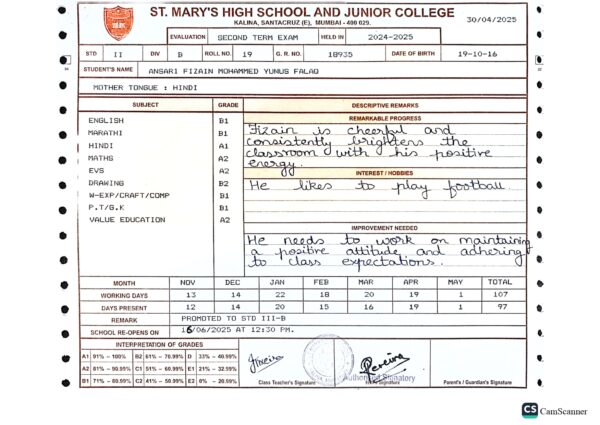 ST. MARY'S HIGH SCHOOL AND JUNIOR COLLEGE
KALINA, SANTACRUZ (E), MUMBAI - 400 029.
30/04/2025
EVALUATION SECOND TERM EXAM HELD IN 2024-2025
STD II DIV B ROLL NO. 19 G. R. NO. 18935 DATE OF BIRTH 19-10-16
STUDENT'S NAME ANSARI FIZAIN MOHAMMED YUNUS FALAQ
MOTHER TONGUE : HINDI
SUBJECT GRADE DESCRIPTIVE REMARKS
REMARKABLE PROGRESS
ENGLISH B1
MARATHI B1
HINDI A1
MATHS A2
EVS A2
DRAWING B2
W-EXP/CRAFT/COMP B1
P.T/G.K B1
VALUE EDUCATION A2
Fizain is cheerful and
consistently brighters the
classroom with his positive
energy.
INTEREST / HOBBIES
He likes to play football.
IMPROVEMENT NEEDED
He needs to work on maintaining
a positive attitude and adhering
to class expectations.
MONTH NOV DEC JAN FEB MAR APR MAY TOTAL
WORKING DAYS 13 14 22 18 20 19 1 107
DAYS PRESENT 12 14 20 15 16 19 1 97
REMARK PROMOTED TO STD III-B
SCHOOL RE-OPENS ON 16/06/2025 AT 12:30 PM.
INTERPRETATION OF GRADES
A1 91% - 100% B2 61% - 70.99% D 33% - 40.99%
A2 81% - 90.99% C1 51% - 60.99% E1 21% - 32.99%
B1 71% - 80.99% C2 41% - 50.99% E2 0% - 20.99%
Class Teacher's Signature
Pereira
Authorised Signatory
Signature
Parent's / Guardian's Signature
CS CamScanner